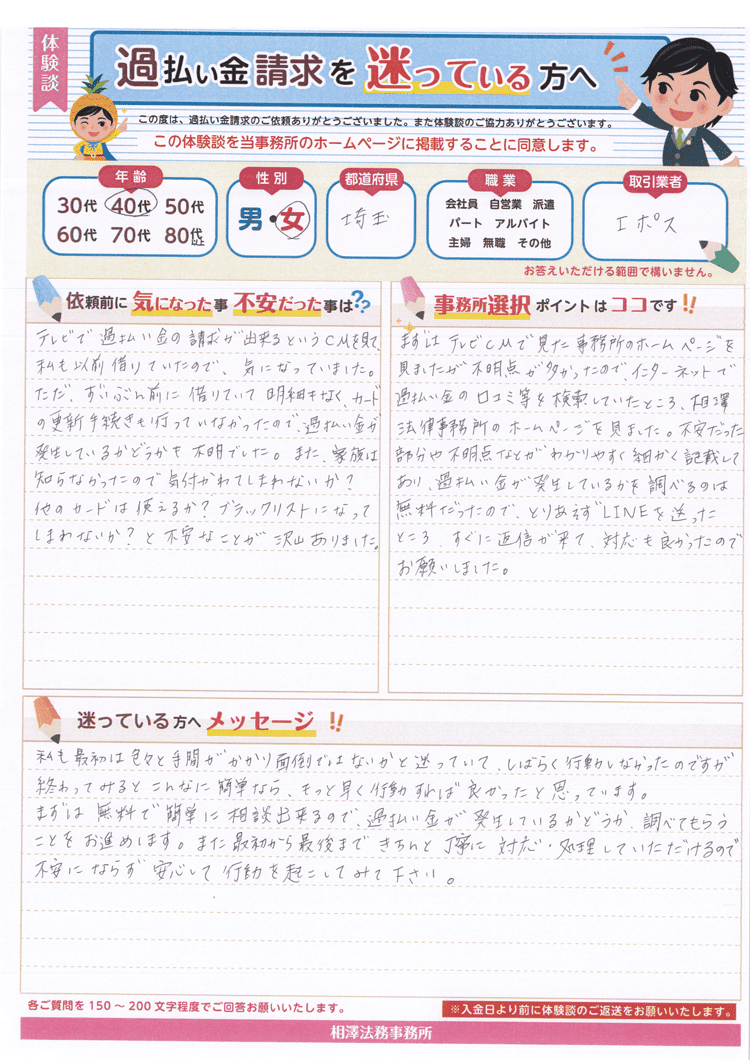 体験談
過払い金請求を迷っている方へ
この度は、過払い金請求のご依頼ありがとうございました。また体験談のご協力ありがとうございます。
この体験談を当事務所のホームページに掲載することに同意します。
年齢
30代 40代 50代
60代 70代 80代以上
性別
男・女
都道府県
埼玉
職業
会社員 自営業 派遣
パート アルバイト
主婦 無職 その他
取引業者
エポス
お答えいただける範囲で構いません。
依頼前に気になった事 不安だった事は??
テレビで過払い金の請求が出来るというCMを見て、
私も以前借りていたので、気になっていました。
ただ、ずいぶん前に借りていて明細もなく、カード
の更新手続きも行っていなかったので、過払い金が
発生しているかどうかも不明でした。また、家族は
知らなかったので気付かれてしまわないか?
他のカードは使えるか?ブラックリストになって
しまわないか?と不安なことが沢山ありました。
事務所選択ポイントはココです!!
まずはテレビCMで見た事務所のホームページを
見ましたが不明点が多かったので、インターネットで
過払い金の口コミ等を検索していたところ、相澤
法律事務所のホームページを見ました。不安だった
部分や不明点などがわかりやすく細かく記載して
あり、過払い金が発生しているかを調べるのは
無料だったので、とりあえずLINEを送った
ところ、すぐに返信が来て、対応も良かったので
お願いしました。
迷っている方へメッセージ!!
私も最初は色々と手間がかかり面倒ではないかと迷っていて、しばらく行動しなかったのですが
終わってみるとこんなに簡単なら、もっと早く行動すれば良かったと思っています。
まずは無料で簡単に相談出来るので、過払い金が発生しているかどうか、調べてもらう
ことをお進めします。また最初から最後まできちんと丁寧に対応・処理していただけるので
不安にならず安心して行動を起こしてみて下さい。
各ご質問を150～200文字程度でご回答お願いいたします。
※入金日より前に体験談のご返送をお願いいたします。
相澤法務事務所